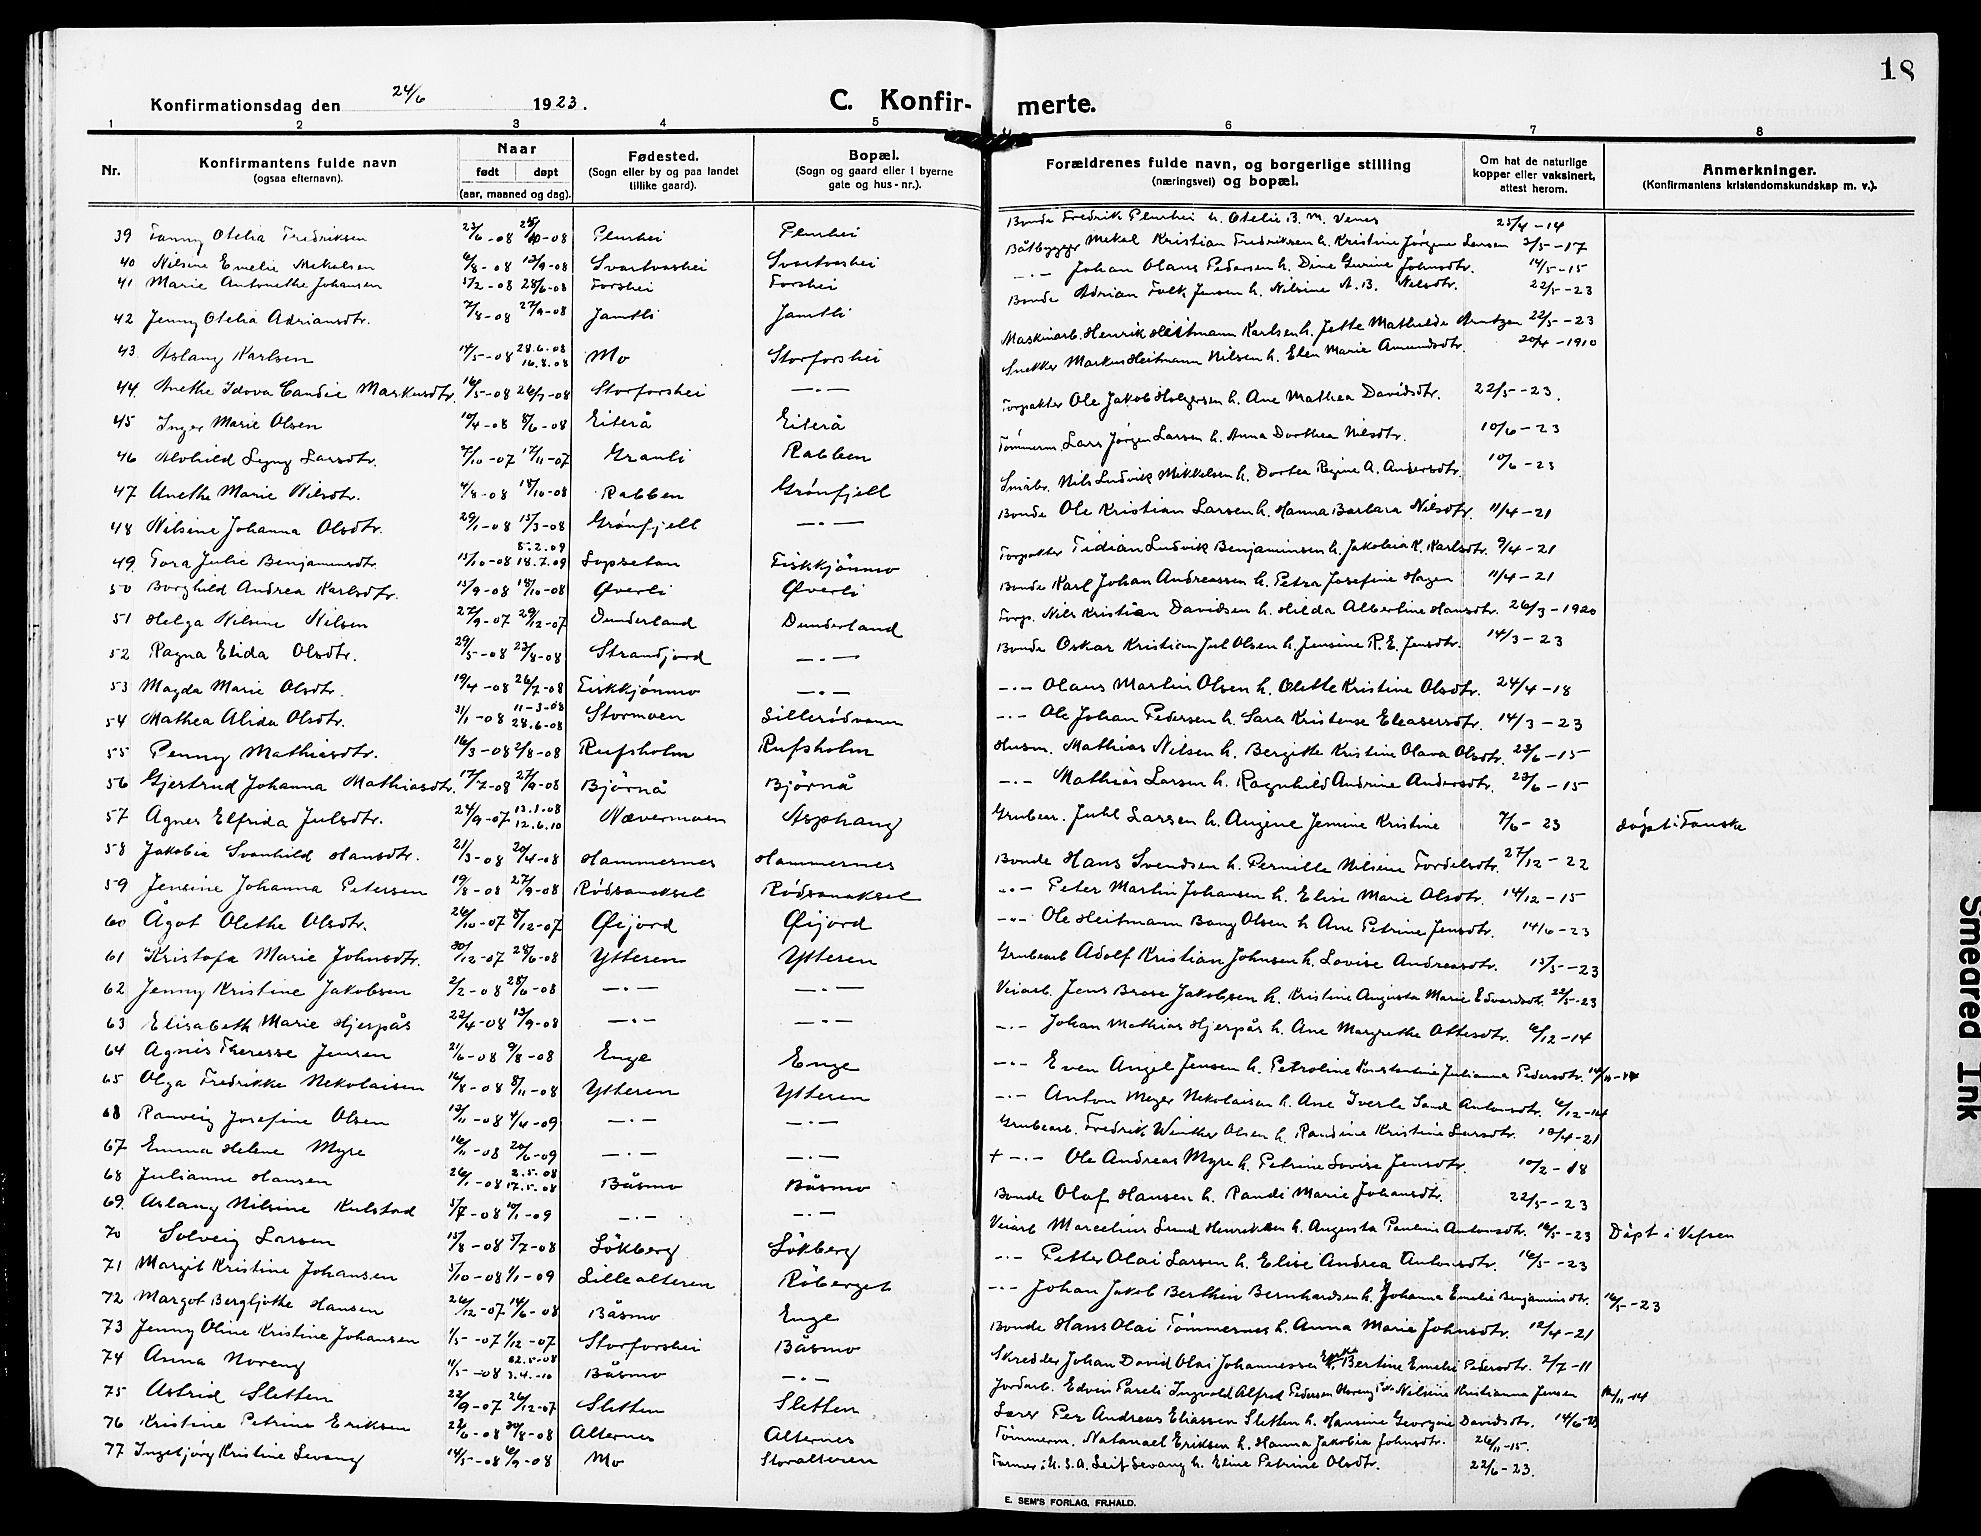 18
Konfirmationsdag den 24/6 1923.
C. Konfir- merte.
1 2 3 4 5 6 7 8
Nr.
Konfirmantens fulde navn
(ogsaa efternavn).
Naar
født døpt
(aar, maaned og dag).
Fødested.
(Sogn eller by og paa landet
tillike gaard).
Bopæl.
(Sogn og gaard eller i byerne
gate og hus-nr.).
Forældrenes fulde navn, og borgerlige stilling
(næringsvei) og bopæl.
Om hat de naturlige
kopper eller vaksinert,
attest herom.
Anmerkninger.
(Konfirmantens kristendomskundskap m. v.).
39 Fanny Otelia Fredriksen 23/6-08 Plurhei Plurhei Bonde Fredrik Plurhei h. Otelie B. M. Venes 25/4-14
40 Nilsine Emelie Mikalsen 6/8-08 13/9-08 Svartvashei Svartvashei Båtbygger Mekal Kristian Fredriksen h. Kristine Jørgine Larsen 3/5-17
41 Marie Antonethe Johansen 28/6-08 Forshei Forshei -.- Johan Olaus Pedersen h. Dine Gurine Johnsdtr. 14/5-15
42 Jenny Otelia Adriansdtr. 7/8-08 27/9-08 Jamtli Jamtli Bonde Adrian Falk Jensen h. Nilsine A. B. Nilsdtr. 22/5-23
43 Aslaug Karlsen 14/5-08 28.6.08 16.8.08 Mo Storforshei Maskinarb. Henrik Heitmann Karlsen h. Jette Mathilde Arntzen 22/5-23
44. Anethe Idova Candie Markusdtr. 16/5-08 26/7-08 Storforshei -.- Snekker Markus Heitmann Nilsen h. Elen Marie Amundsdtr. 20/4-1910
45 Inger Marie Olsen 10/4-08 8/6-08 Eiterå Eiterå Forpakter Ole Jakob Holgersen h. Ane Mathea Davidsdtr. 22/5-23.
46 Alvhild Lyng Larsdtr. 7/10-07 17/11-07 Granli Rabben Tømmerm. Lars Jørgen Larsen h. Anna Dorthea Nilsdtr. 10/6-23
47 Anethe Marie Nilsdtr. 4/8-08 18/10-08 Rabben Grønfjell Småbr. Nils Ludvik Mikkelsen h. Dortea Regine A. Andersdtr. 10/6-23
48 Nilsine Johanna Olsdtr. 29/1-08 15/3-08 Grønfjell -.- Bonde Ole Kristian Larsen h. Hanna Barbara Nilsdtr. 11/4-21
49. Tora Julie Benjaminsdtr. 13/10-08 5.2.09 18.7.09 Fiskkjønmo Forpakter Tidian Ludvik Benjaminsen h. Jakobia K. Karlsdtr. 9/4-21
50 Borghild Andrea Karlsdtr. 13/9-08 18/10-08 Øverli Øverli Bonde Karl Johan Andreassen h. Petra Josefine Hagen 11/4-21
51 Helga Nilsine Nilsen 27/9-07 29/12-07 Dunderland Dunderland Forp. Nils Kristian Davidsen h. Hilda Albertine Hansdtr. 26/3-1920
52 Ragna Elida Olsdtr. 29/5-08 23/8-08 Strandjord -.- Bonde Oskar Kristian Jul Olsen h. Jensine R. E. Jensdtr. 14/3-23
53 Magda Marie Olsdtr. 19/4-08 26/7-08 Fiskkjønmo -.- -.- Olaus Martin Olsen h. Olette Kristine Olsdtr. 24/4-18
54 Mathea Alida Olsdtr. 31/1-08 11-3-08 28.6-08 Stormoen Lillerødvann -.- Ole Johan Pedersen h. Sara Kristense Eleasersdtr. 14/3-23
55 Penny Mathiasdtr. 16/3-08 2/8-08 Rufsholm Rufsholm Husm. Mathias Nilsen h. Bergitte Kristine Olava Olsdtr. 23/6-15
56 Gjertrud Johanna Mathiasdtr. 17/7-08 27/9-08 Bjørnå Bjørnå -.- Mathias Larsen h. Ragnhild Andrine Andersdtr. 23/6-15
57 Agnes Elfrida Julsdtr. 24/9-07 13.1.08 12.6.10 Nævermoen Asphaug Grubear. Juhl Larsen h. Angine Jemine Kristine 7/6-23 døpt i Fauske
58 Jakobie Svanhild Hansdtr. 21/3-08 20/4-08 Hammernes Hammernes Bonde Hans Svendsen h. Pernille Nilsine Tordelsdtr. 27/12-22
59 Jensine Johanna Petersen 19/8-08 27/9-08 Rødsanaksel Rødsanaksel -.- Peter Martin Johansen h. Elise Marie Olsdtr. 14/12-15
60 Ågot Olethe Olsdtr. 26/10-07 8/12-07 Øijord Øijord -.- Ole Heitmann Bang Olsen h. Ane Petrine Jensdtr. 14/6-23
61 Kristofa Marie Johnsdtr. 30/12-07 28/6-08 Ytteren Ytteren Grubearb Adolf Kristian Johnsen h. Lovise Andreasdtr. 15/5-23
62 Jenny Kristine Jakobsen 2/2-08 28/6-08 -.- -.- Veiarb. Jens Brose Jakobsen h. Kristine Augusta Marie Edvardsdtr. 22/5-23
63 Elisabeth Marie Hjerpås 22/4-08 13/9-08 -.- -.- -.- Johan Mathias Hjerpås h. Ane Margrethe Ottesdtr. 6/12-14
64 Agnes Theresse Jensen 21/6-08 9/8-08 Enge Enge -.- Even Angel Jensen h. Petroline Konstantine Julianna Pedersdtr.
65 Olga Fredrikke Nekolaisen 16/8-08 8/11-08 Ytteren Ytteren -.- Anton Meyer Nekolaisen h. Ane Iverle Sand Antonsdtr. 6/12-14
68 Ranveig Josefine Olsen 13/11-08 4/4-09 -.- -.- Grubearb. Fredrik Winther Olsen h. Randine Kristine Larsdtr. 13/4-21
67 Emma Helene Myre 16/11-08 20/6-09 -.- -.- + -.- Ole Andreas Myre h. Petrine Lovise Jensdtr. 10/2-18
68 Julianne Hansen 26/1-08 2.5.08 17.5.08 Båsmo Båsmo Bonde Olaf Hansen h. Randi Marie Johansdtr. 22/5-23
69. Aslaug Nilsine Kulstad 5/7-08 10/1-09 -.- -.- Veiarb Marcelius Lund Henriksen h. Augusta Pauline Antonsdtr. 16/5-23 Døpt i Vefsen
70 Solveig Larsen 15/8-08 5/7-08 Løkberg Løkberg -.- Petter Olai Larsen h. Elise Andrea Antonsdtr. 16/5-23
71 Margit Kristine Johansen 5/10-08 4/1-09 Lillealteren Røberget -.- Johan Jakob Berthin Bernhardsen h. Johanna Emelie Benjaminsdtr. 16/5-23
72 Margot Bergljothe Hansen 26/12-07 14/6-08 Båsmo Enge Bonde Hans Olai Tømmernes h. Anna Marie Johnsdtr. 12/4-21
73 Jenny Oline Kristine Johansen 1/5-07 1/12-07 Storforshei Båsmo Skredder Johan David Olai Johannessen Enke Bertine Emelie Pedersdtr. 2/7-11
74 Anna Noreng 11/5-08 22.5-08 3.4.-10 Båsmo -.- Jordarb. Edvin Pareli Ingvald Alfred Pedersen Noreng Nilsine Kristianna Jensen
75 Astrid Sletten 22/9-07 26/12-07 Sletten Sletten Lærer Per Andreas Eliassen Sletten h. Hansine Georgine Davidsdtr. 14/6-23
76 Kristine Petrine Eriksen 30/8-08 Alternes Alternes Tømmerm. Natanael Eriksen h. Hanna Jakobia Johnsdtr. 26/11-15.
77 Ingebjørg Kristine Sevang 14/5-08 6/9-08 Mo Storalteren Farmer i U.S.A. Leif Sevang h. Eline Petrine Olsdtr. 22/6-23.
E. SEM'S FORLAG, FR.HALD.
Smeared Ink